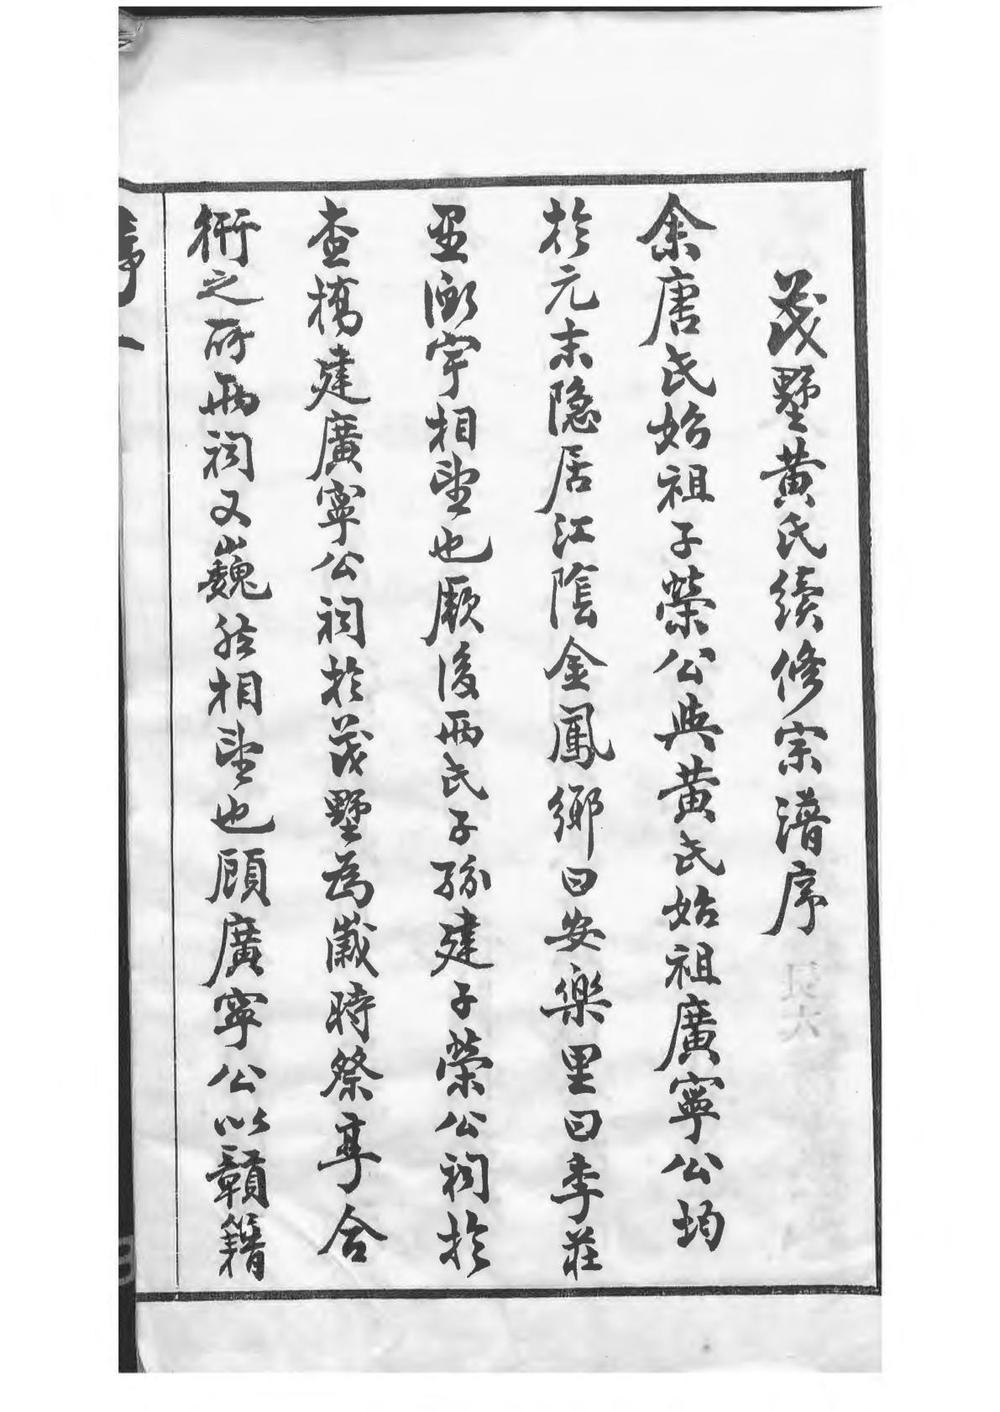 茂墅黄氏續修宗譜序
余唐氏始祖子榮公與黄氏始祖廣寧公均
於元末隐居江陰金鳳鄉曰安樂里曰李莊
皆衡宇相望也厥後兩氏子孫建子榮公祠於
查橋建廣寧公祠於茂墅為歲時祭享合
衎之所兩祠又巍然相望也顧廣寧公以贛籍
序 一